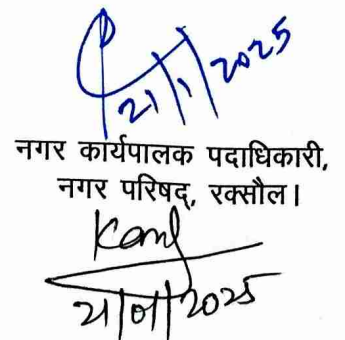 21/1/2025
नगर कार्यपालक पदाधिकारी,
नगर परिषद्, रक्सौल।
21/01/2025